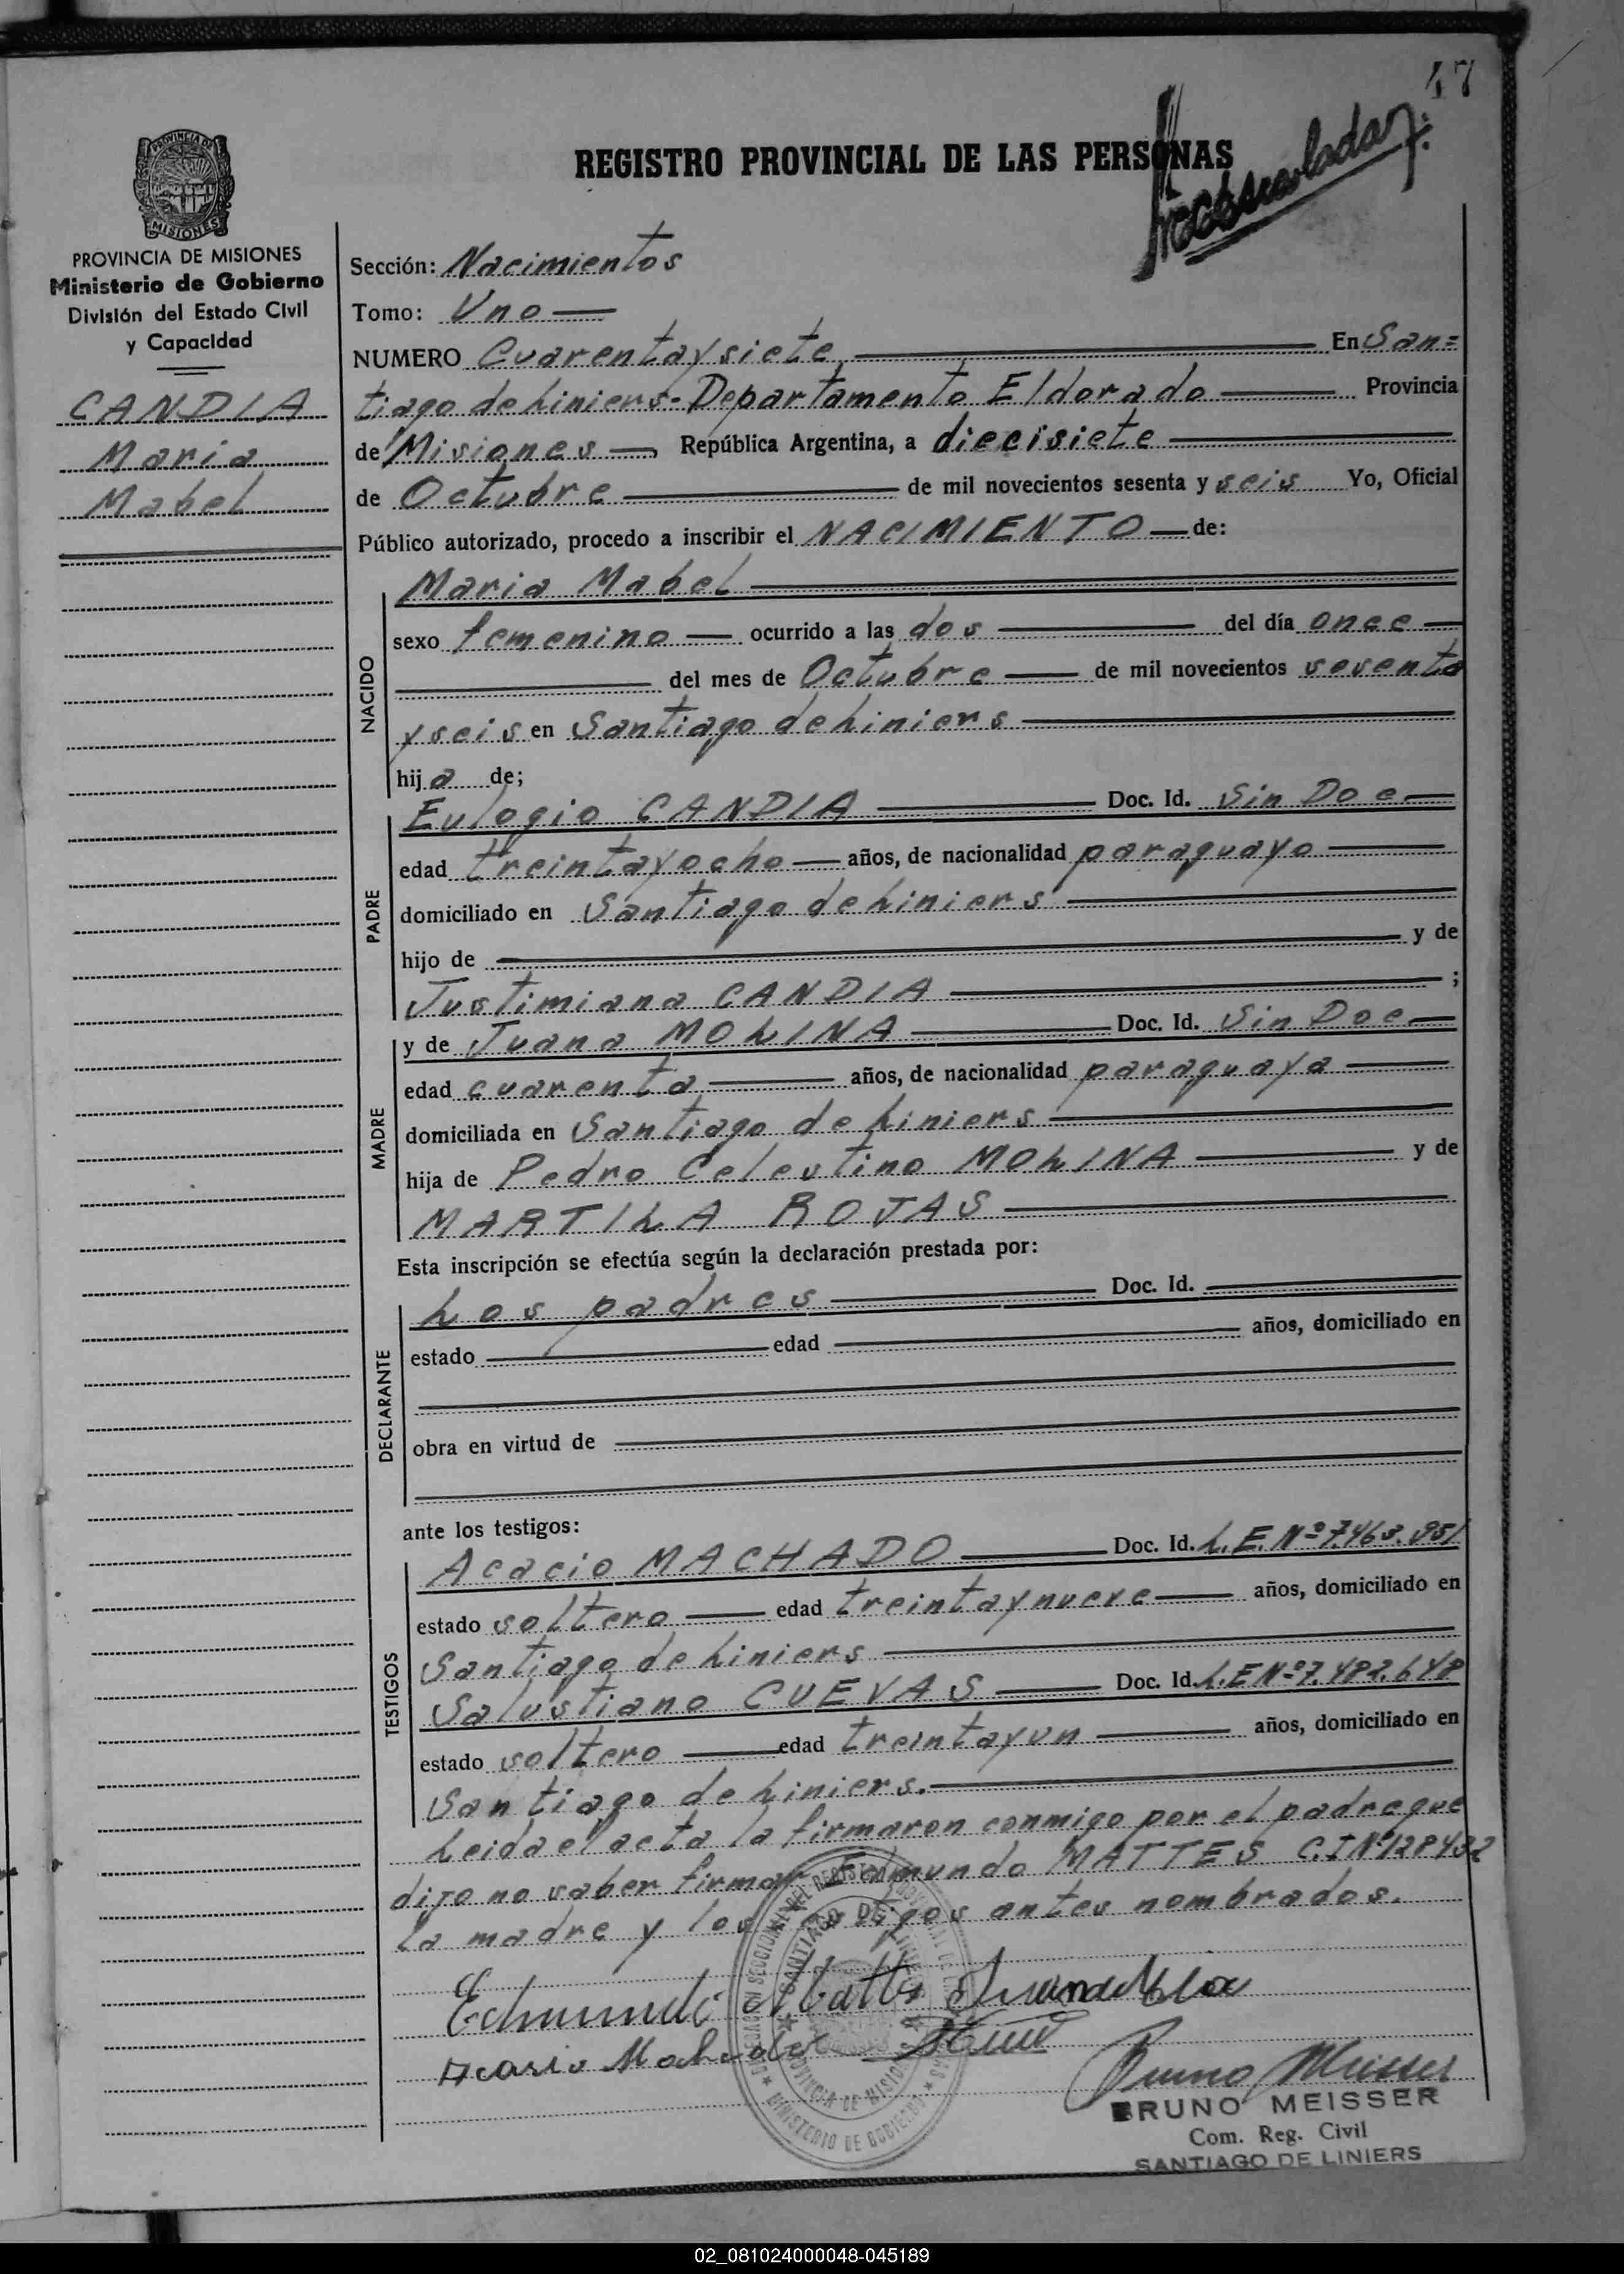 47
REGISTRO PROVINCIAL DE LAS PERSONAS
PROVINCIA DE
MISIONES
PROVINCIA DE MISIONES
Ministerio de Gobierno
División del Estado Civil
y Capacidad
CANDIA
Maria
Mabel
Sección: Nacimientos
Tomo: Uno
NUMERO Cuarentaysiete En San=
tiago de Liniers - Departamento Eldorado Provincia
de Misiones República Argentina, a diecisiete
de Octubre de mil novecientos sesenta y seis Yo, Oficial
Público autorizado, procedo a inscribir el NACIMIENTO de:
NACIDO
Maria Mabel
sexo femenino ocurrido a las dos del día once
del mes de Octubre de mil novecientos sesenta
y seis en Santiago de Liniers
hija de;
PADRE
Eulogio CANDIA Doc. Id. Sin Doc
edad treintayocho años, de nacionalidad paraguayo
domiciliado en Santiago de Liniers
hijo de y de
Justimiana CANDIA ;
MADRE
y de Juana MOLINA Doc. Id. Sin Doc
edad cuarenta años, de nacionalidad paraguaya
domiciliada en Santiago de Liniers
hija de Pedro Celestino MOLINA y de
MARTILA ROJAS
Esta inscripción se efectúa según la declaración prestada por:
DECLARANTE
Los padres Doc. Id.
estado edad años, domiciliado en
obra en virtud de
ante los testigos:
TESTIGOS
Acacio MACHADO Doc. Id. L.E. Nº 7.463.951
estado soltero edad treintaynueve años, domiciliado en
Santiago de Liniers
Salustiano CUEVAS Doc. Id. L.E Nº 7.482.648
estado soltero edad treintayun años, domiciliado en
Santiago de Liniers.
Leida el acta la firmaron conmigo por el padre que
dijo no saber firmar Edmundo MATTES C.I Nº 128432
la madre y los testigos antes nombrados.
SANTIAGO DE
PROVINCIA DE MISIONES
MINISTERIO DE GOBIERNO
Bruno Meisser
BRUNO MEISSER
Com. Reg. Civil
SANTIAGO DE LINIERS
02_081024000048-045189